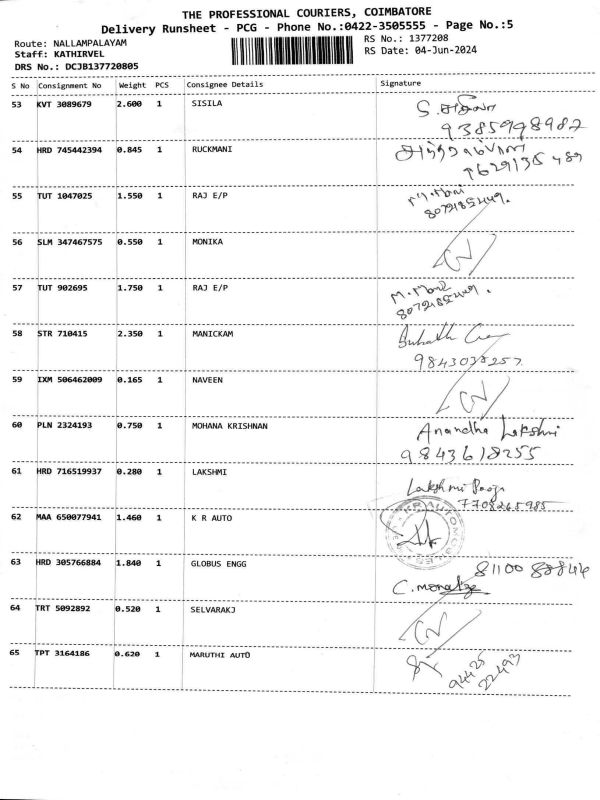 THE PROFESSIONAL COURIERS, COIMBATORE
Delivery Runsheet - PCG - Phone No.:0422-3505555 - Page No.:5
Route: NALLAMPALAYAM RS No.: 1377208
Staff: KATHIRVEL RS Date: 04-Jun-2024
DRS No.: DCJB137720805
S No Consignment No Weight PCS Consignee Details Signature
53 KVT 3089679 2.600 1 SISILA
9385998987
54 HRD 745442394 0.845 1 RUCKMANI
55 TUT 1047025 1.550 1 RAJ E/P
8072185449.
56 SLM 347467575 0.550 1 MONIKA
57 TUT 902695 1.750 1 RAJ E/P
8072185449.
58 STR 710415 2.350 1 MANICKAM
9843038257
59 IXM 506462009 0.165 1 NAVEEN
60 PLN 2324193 0.750 1 MOHANA KRISHNAN Anandha Lakshmi
9843618255
61 HRD 716519937 0.280 1 LAKSHMI Lakshmi Pooja
7708265985
62 MAA 650077941 1.460 1 K R AUTO
63 HRD 305766884 1.840 1 GLOBUS ENGG
64 TRT 5092892 0.520 1 SELVARAKJ
65 TPT 3164186 0.620 1 MARUTHI AUTO
94425
22493